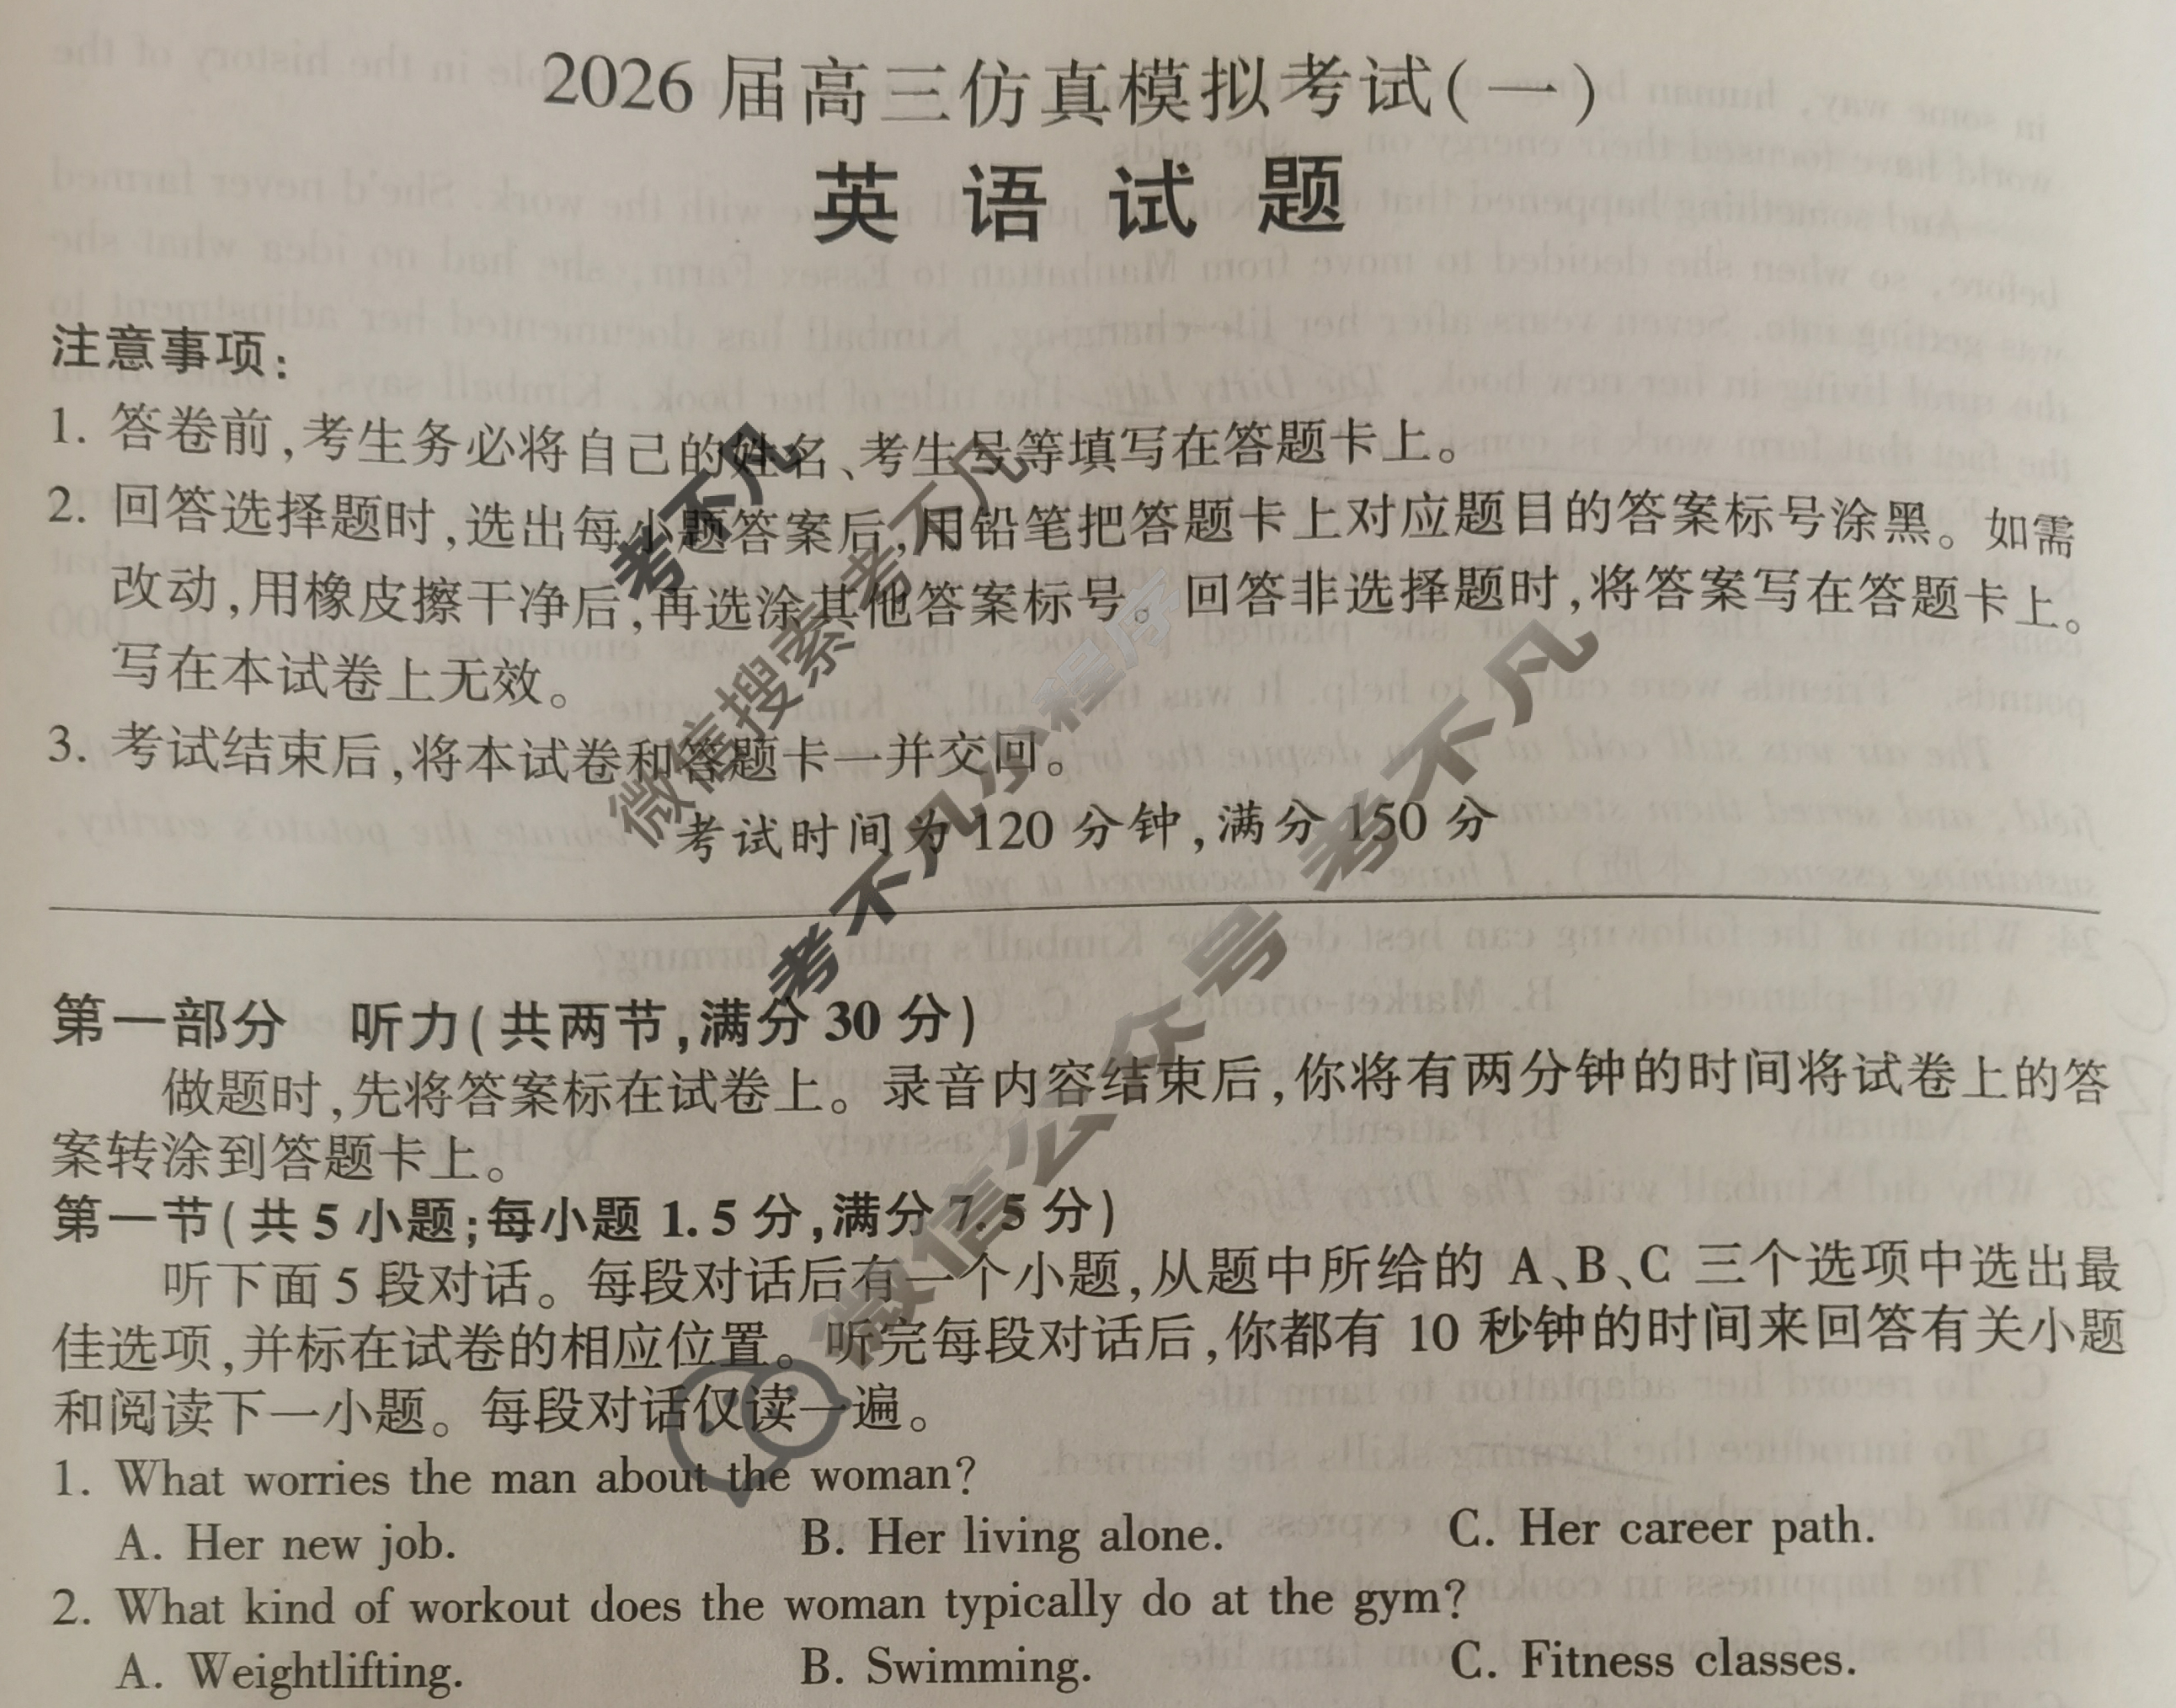 2026 届高三仿真模拟考试(一)
英 语 试 题
注意事项:
1. 答卷前,考生务必将自己的姓名、考生号等填写在答题卡上。
2. 回答选择题时,选出每小题答案后,用铅笔把答题卡上对应题目的答案标号涂黑。如需
改动,用橡皮擦干净后,再选涂其他答案标号。回答非选择题时,将答案写在答题卡上。
写在本试卷上无效。
3. 考试结束后,将本试卷和答题卡一并交回。
考试时间为 120 分钟,满分 150 分
第一部分 听力(共两节,满分 30 分)
做题时,先将答案标在试卷上。录音内容结束后,你将有两分钟的时间将试卷上的答
案转涂到答题卡上。
第一节(共 5 小题;每小题 1.5 分,满分 7.5 分)
听下面 5 段对话。每段对话后有一个小题,从题中所给的 A、B、C 三个选项中选出最
佳选项,并标在试卷的相应位置。听完每段对话后,你都有 10 秒钟的时间来回答有关小题
和阅读下一小题。每段对话仅读一遍。
1. What worries the man about the woman?
A. Her new job. B. Her living alone. C. Her career path.
2. What kind of workout does the woman typically do at the gym?
A. Weightlifting. B. Swimming. C. Fitness classes.
考不凡
微信搜索 考不凡
考不凡小程序
微信公众号 考不凡